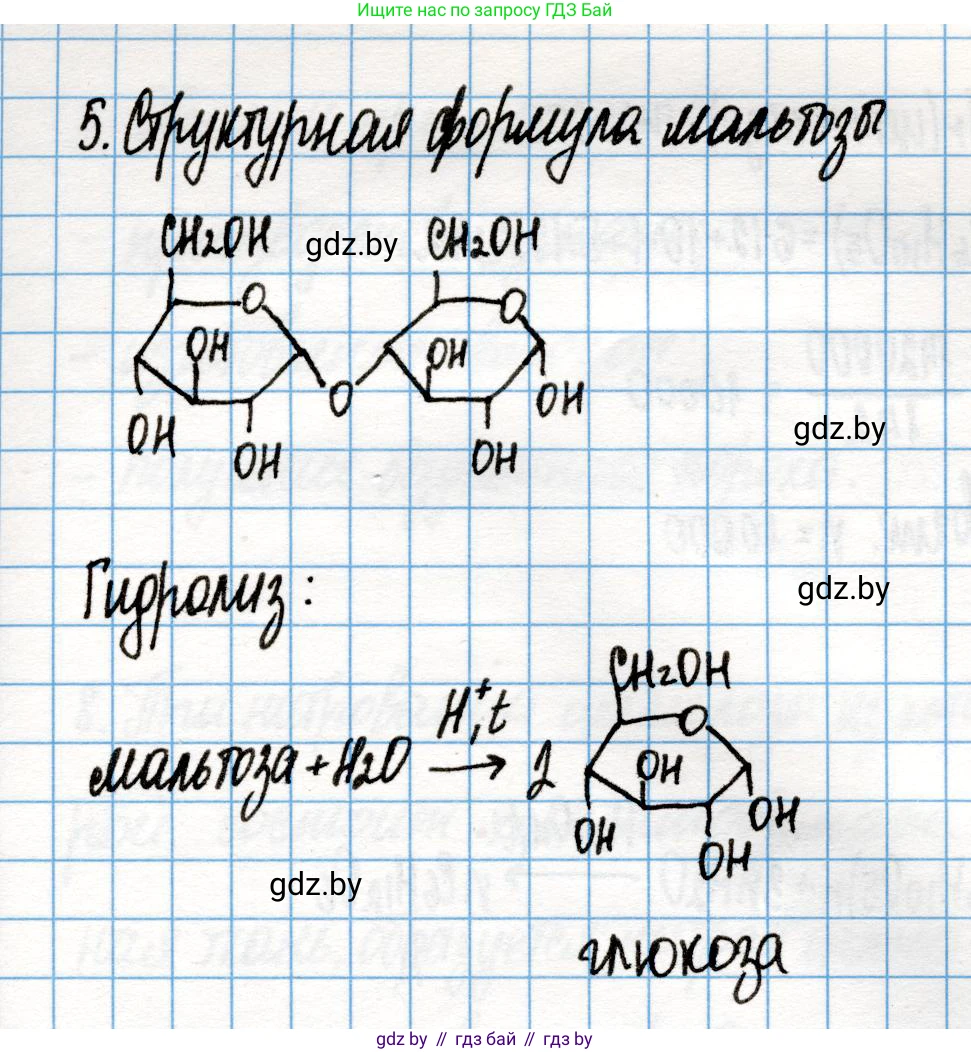 Ищите нас по запросу ГДЗ Бай
5. Структурная формула мальтозы
CH2OH gdz.by CH2OH
O O
OH OH
O OH
OH OH OH
gdz.by
Гидролиз:
gdz.by
CH2OH
H⁺, t O
мальтоза + H2O → 2 OH
OH OH OH
gdz.by
глюкоза
gdz.by // гдз бай // гдз by